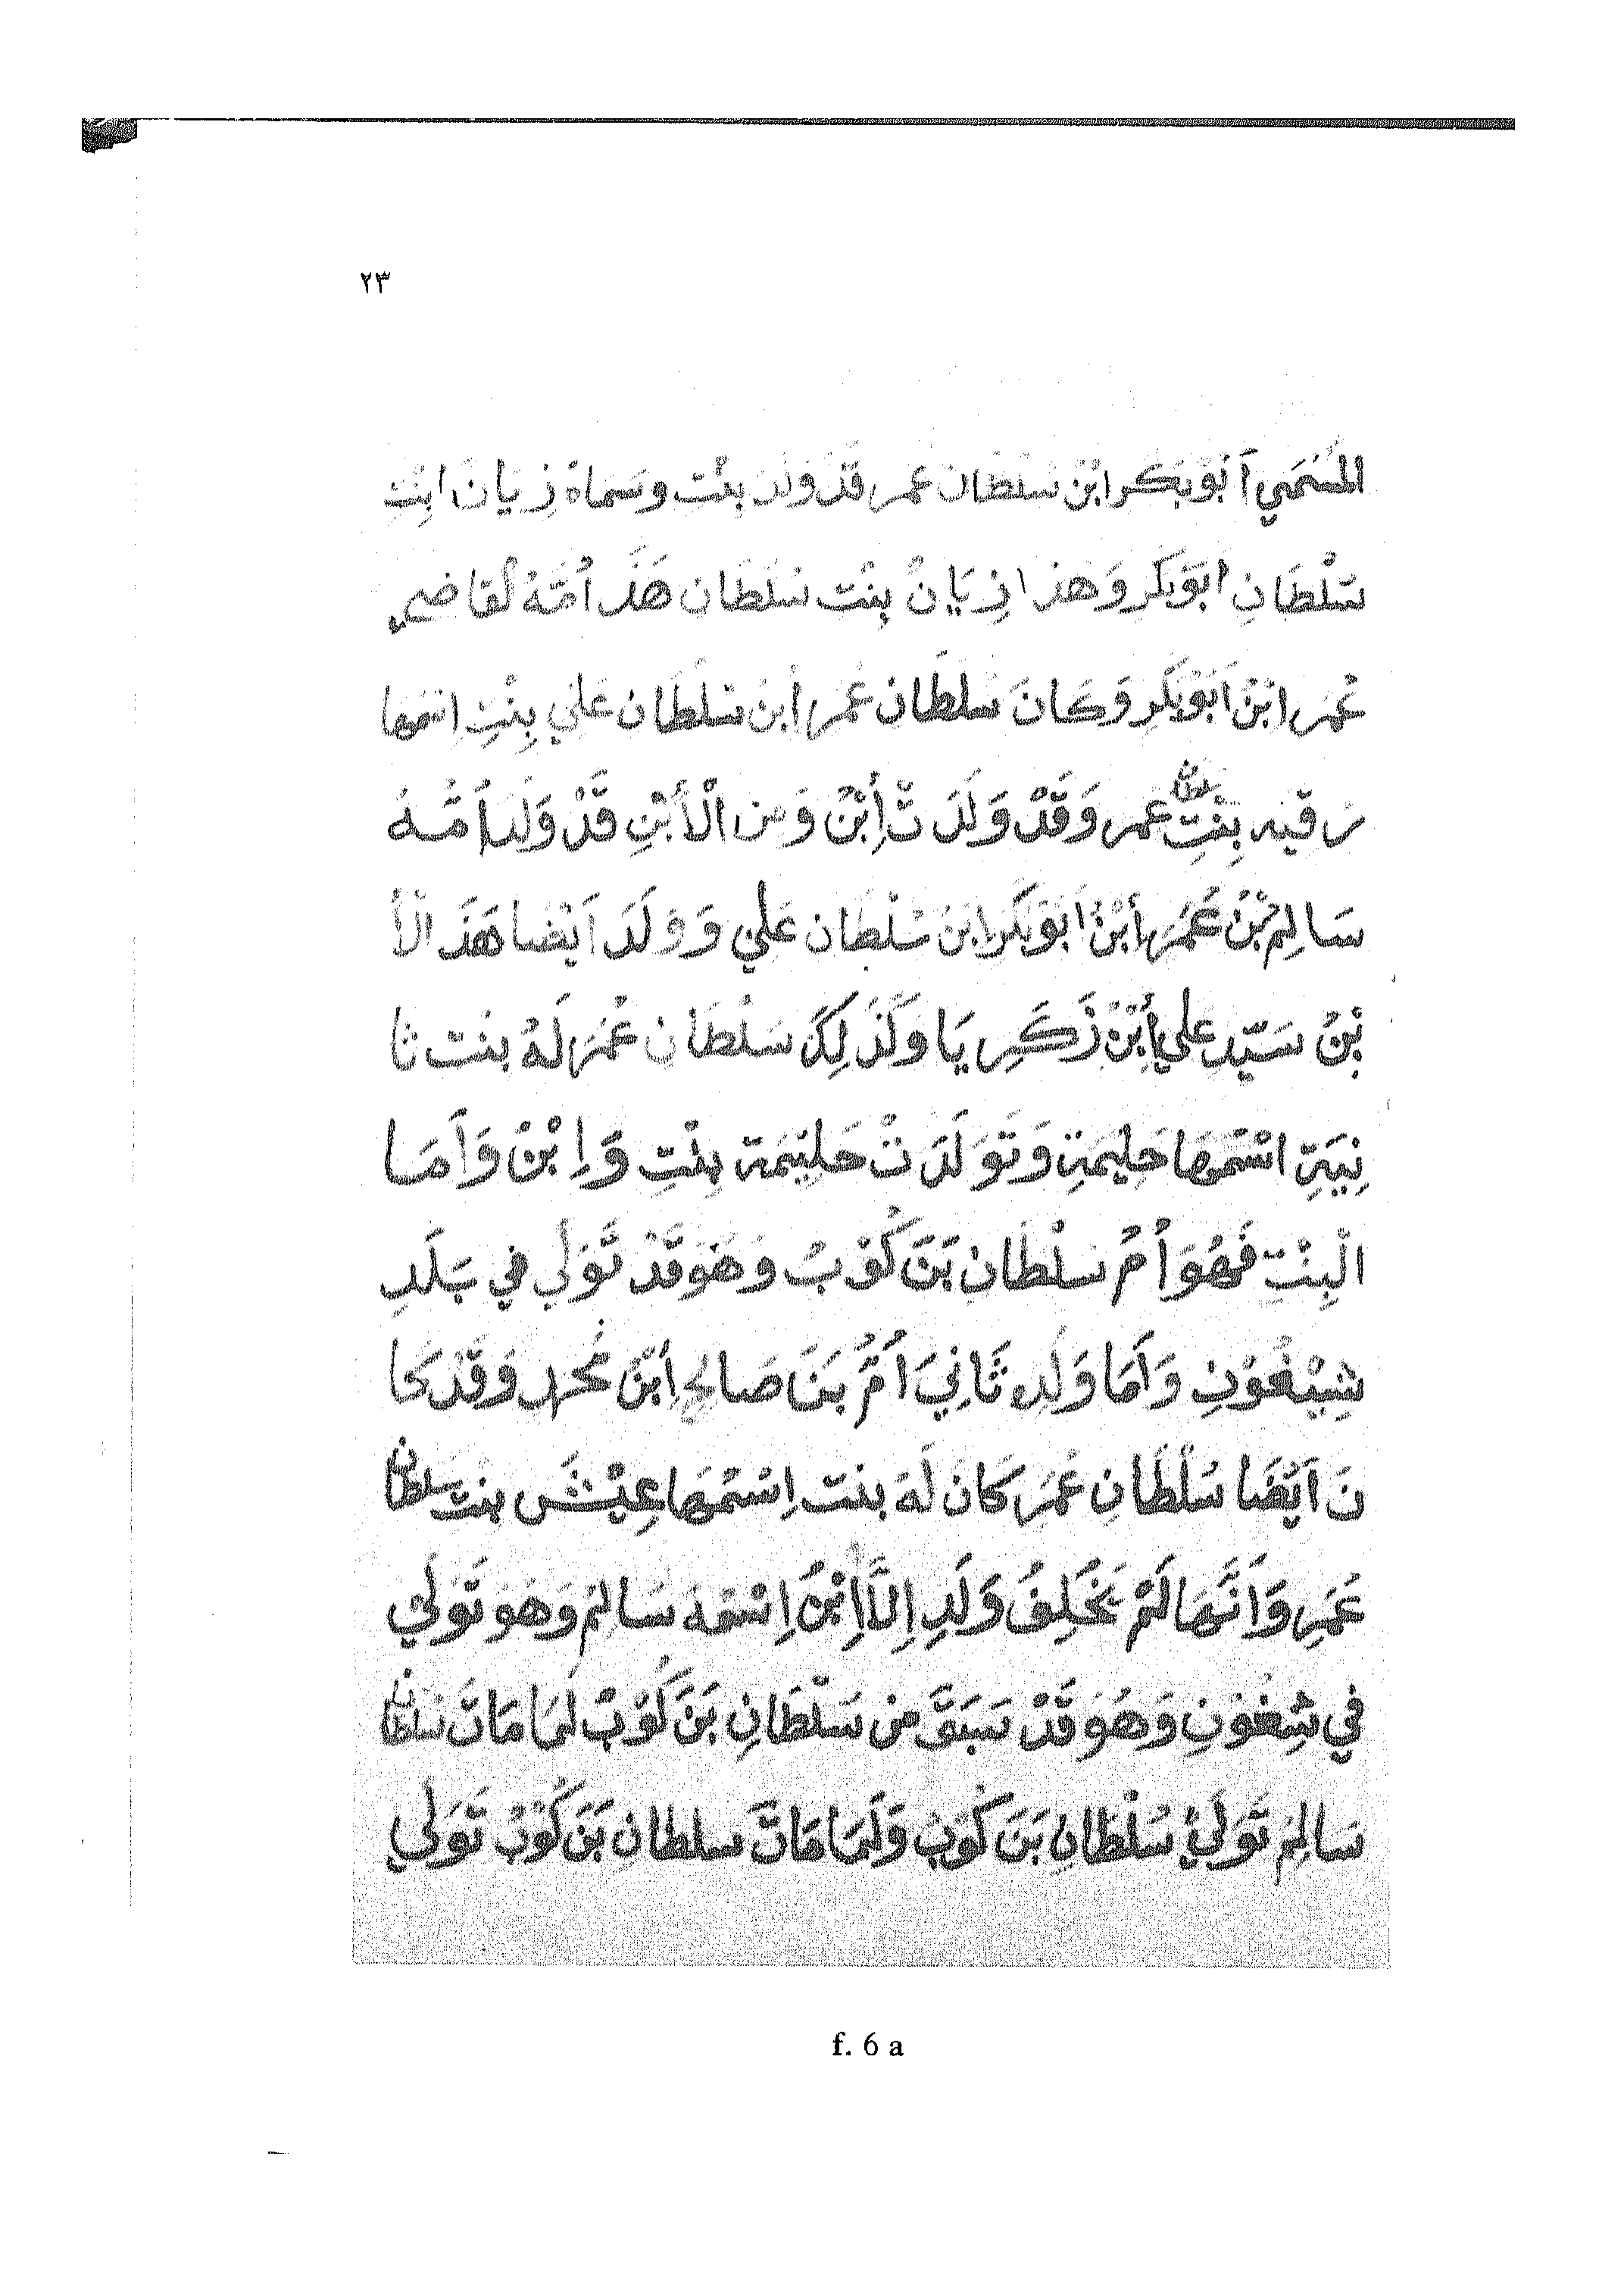 ٢٣
المُسَمَي أَبُوبَكر ابْن سُلْطَان عمر قَدْ وَلَدَ بِنْت وسَمَاهُ زِيَانَ ابِنْتِ
سُلْطَانِ ابَوبَكَر وَهذا زِيَانُ بِنْت سُلطَان هَذَ اُمَّهُ لْقاضي
عُمَر ابْنْ ابَوْبَكَرِ وَكَانَ سُلطَان عُمَر أبن سُلطَان عَلي بِنْتِ اسْمها
رقيه بِنْتِ سلطان عمر وَقَدْ وَلَدَ تْ أِبْنْ وَمِن الْأَبْنِ قَدْ وَلَدَ أُمَّهُ
سَالِمْ بْنُ عُمَر أبْنْ ابَوبَكَر ابْنُ سُلْطَان عَلي وَوَلَدَ اَيْضا هَذَ الْأ
بْنُ سَيّدِ علي أِبْنْ زَكَرِ يَا وَكَذَ لِكَ سَلْطَانِ عُمَر لَهُ بنت ثا
نِيَةِ اسْمَهَا حَلِيمَةِ وَتَوَلَدَ تْ حَلِيَمَة بِنْتِ وَاِ بْنُ وَاَمَا
الْبِنْتِ فَهُوَ اُمُ سُلْطَانِ بَنَ كُوْبُ وَهُوَ قَدْ تَّوَلي في بَلَدِ
شِيْغُوْنِ وَأَمَا وَلَدِ ثَانِيَ اُمُّ بَنَ صَالِحِ اِبْنُ مُحَمد وَقَدْ كَا
نَ اَيْضَا سُلْطَانِ عُمَرَ كَانَ لَهَ بنت اِسْمُهَا عِيْشَ بنت سلطان
عُمَرِ وَاَنَّهَا لَمْ يَخْلِفُ وَلَدِ اِلاَّ اِبْنُ اِسْمَهُ سَالِمْ وَهُوَ تَوَلي
في شِغُوْنِ وَهُوَ قَدْ سَبَقَ مِن سُلْطَانِ بَنَ كُوْبْ لَمَا مَاتَ سُلطان
سَالِمْ تَّوَلَيْ سُلْطَانِ بَنَ كُوَبْ وَلَمَا مَاتَ سلطانِ بَنَ كُوْبُ تَّوَلي
f. 6 a